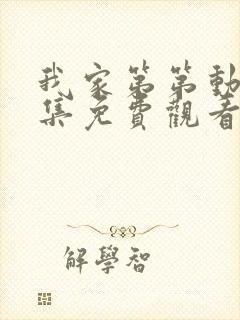 我家第第動
集免費觀看
解學智